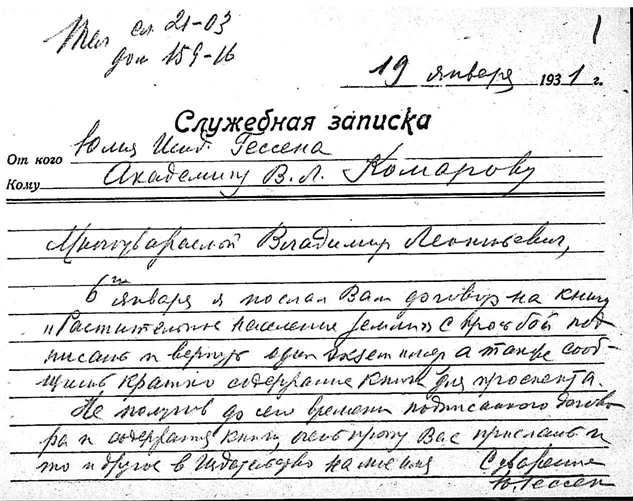 Тел сл 21-03
дом 159-16
1
19 января 1931 г.
Служебная записка
От кого Юлия Исид. Гессена
Кому Академику В. Л. Комарову
Многоуважаемый Владимир Леонтьевич,
6го января я послал Вам договор на книгу
"Растительное население земли" с просьбой под
писать и вернуть один экземпляр а также сооб-
щить кратко содержание книги для проспекта.
Не получив до сего времени подписанного догово
ра и содержания книги, очень прошу Вас прислать и
то и другое в Издательство на мое имя
С уважением
Ю. Гессен